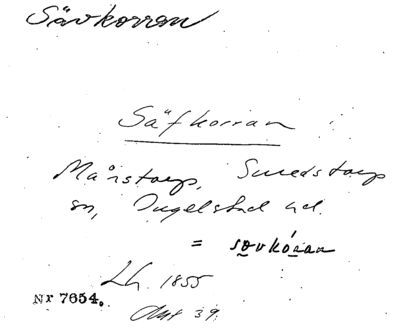 Sävkorran
Säfkorran
Månstorp, Smedstorps
sn, Ingelstad hd.
= sovkóran
Lh. 1855
Nr 7654.
Akt 39